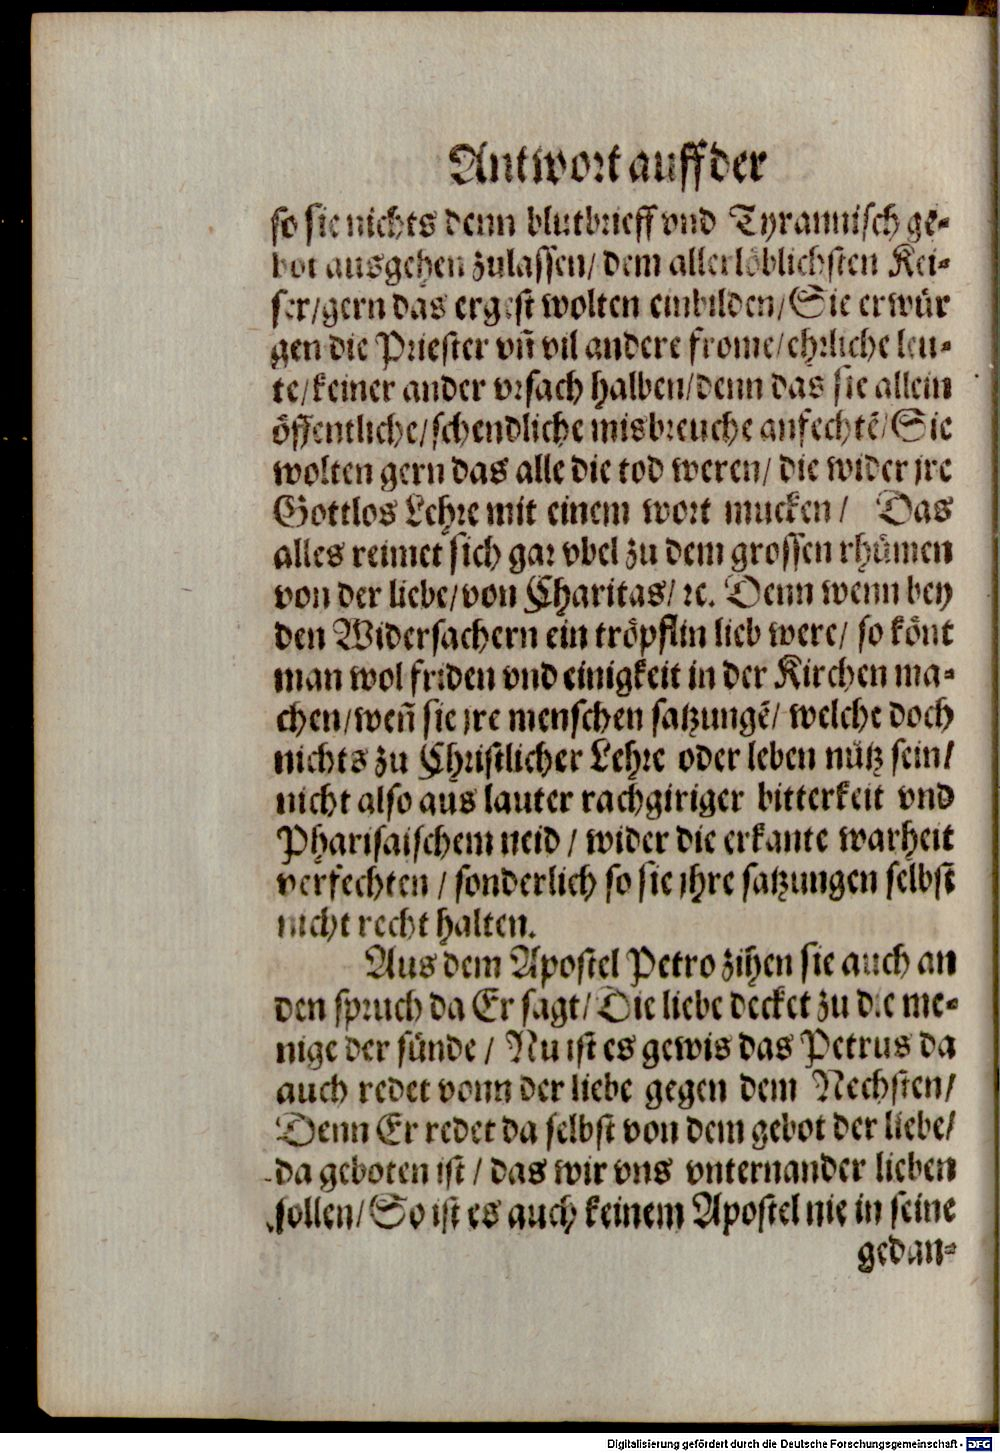 Antwort auff der
so sie nichts denn blutbrieff vnd Tyrannisch ge-
bot ausgehen zulassen/ dem allerlöblichsten Kei-
ser/gern das ergest wolten einbilden/Sie erwür
gen die Priester vn̄ vil andere frome/ehrliche leu-
te/keiner ander vrsach halben/denn das sie allein
öffentliche/schendliche misbreuche anfechtē/Sie
wolten gern das alle die tod weren/ die wider jre
Gottlos Lehre mit einem wort mucken/ Das
alles reimet sich gar vbel zu dem grossen rhümen
von der liebe/von Charitas/ ꝛc. Denn wenn bey
den Widersachern ein tröpflin lieb were/ so könt
man wol friden vnd einigkeit in der Kirchen ma-
chen/wen̄ sie jre menschen satzungē/ welche doch
nichts zu Christlicher Lehre oder leben nütz sein/
nicht also aus lauter rachgiriger bitterkeit vnd
Pharisaischem neid / wider die erkante warheit
verfechten / sonderlich so sie jhre satzungen selbst
nicht recht halten.
Aus dem Apostel Petro zihen sie auch an
den spruch da Er sagt/ Die liebe decket zu die me-
nige der sünde / Nu ist es gewis das Petrus da
auch redet vonn der liebe gegen dem Nechsten/
Denn Er redet da selbst von dem gebot der liebe/
da geboten ist / das wir vns vnternander lieben
sollen/ So ist es auch keinem Apostel nie in seine
gedan-
Digitalisierung gefördert durch die Deutsche Forschungsgemeinschaft - DFG